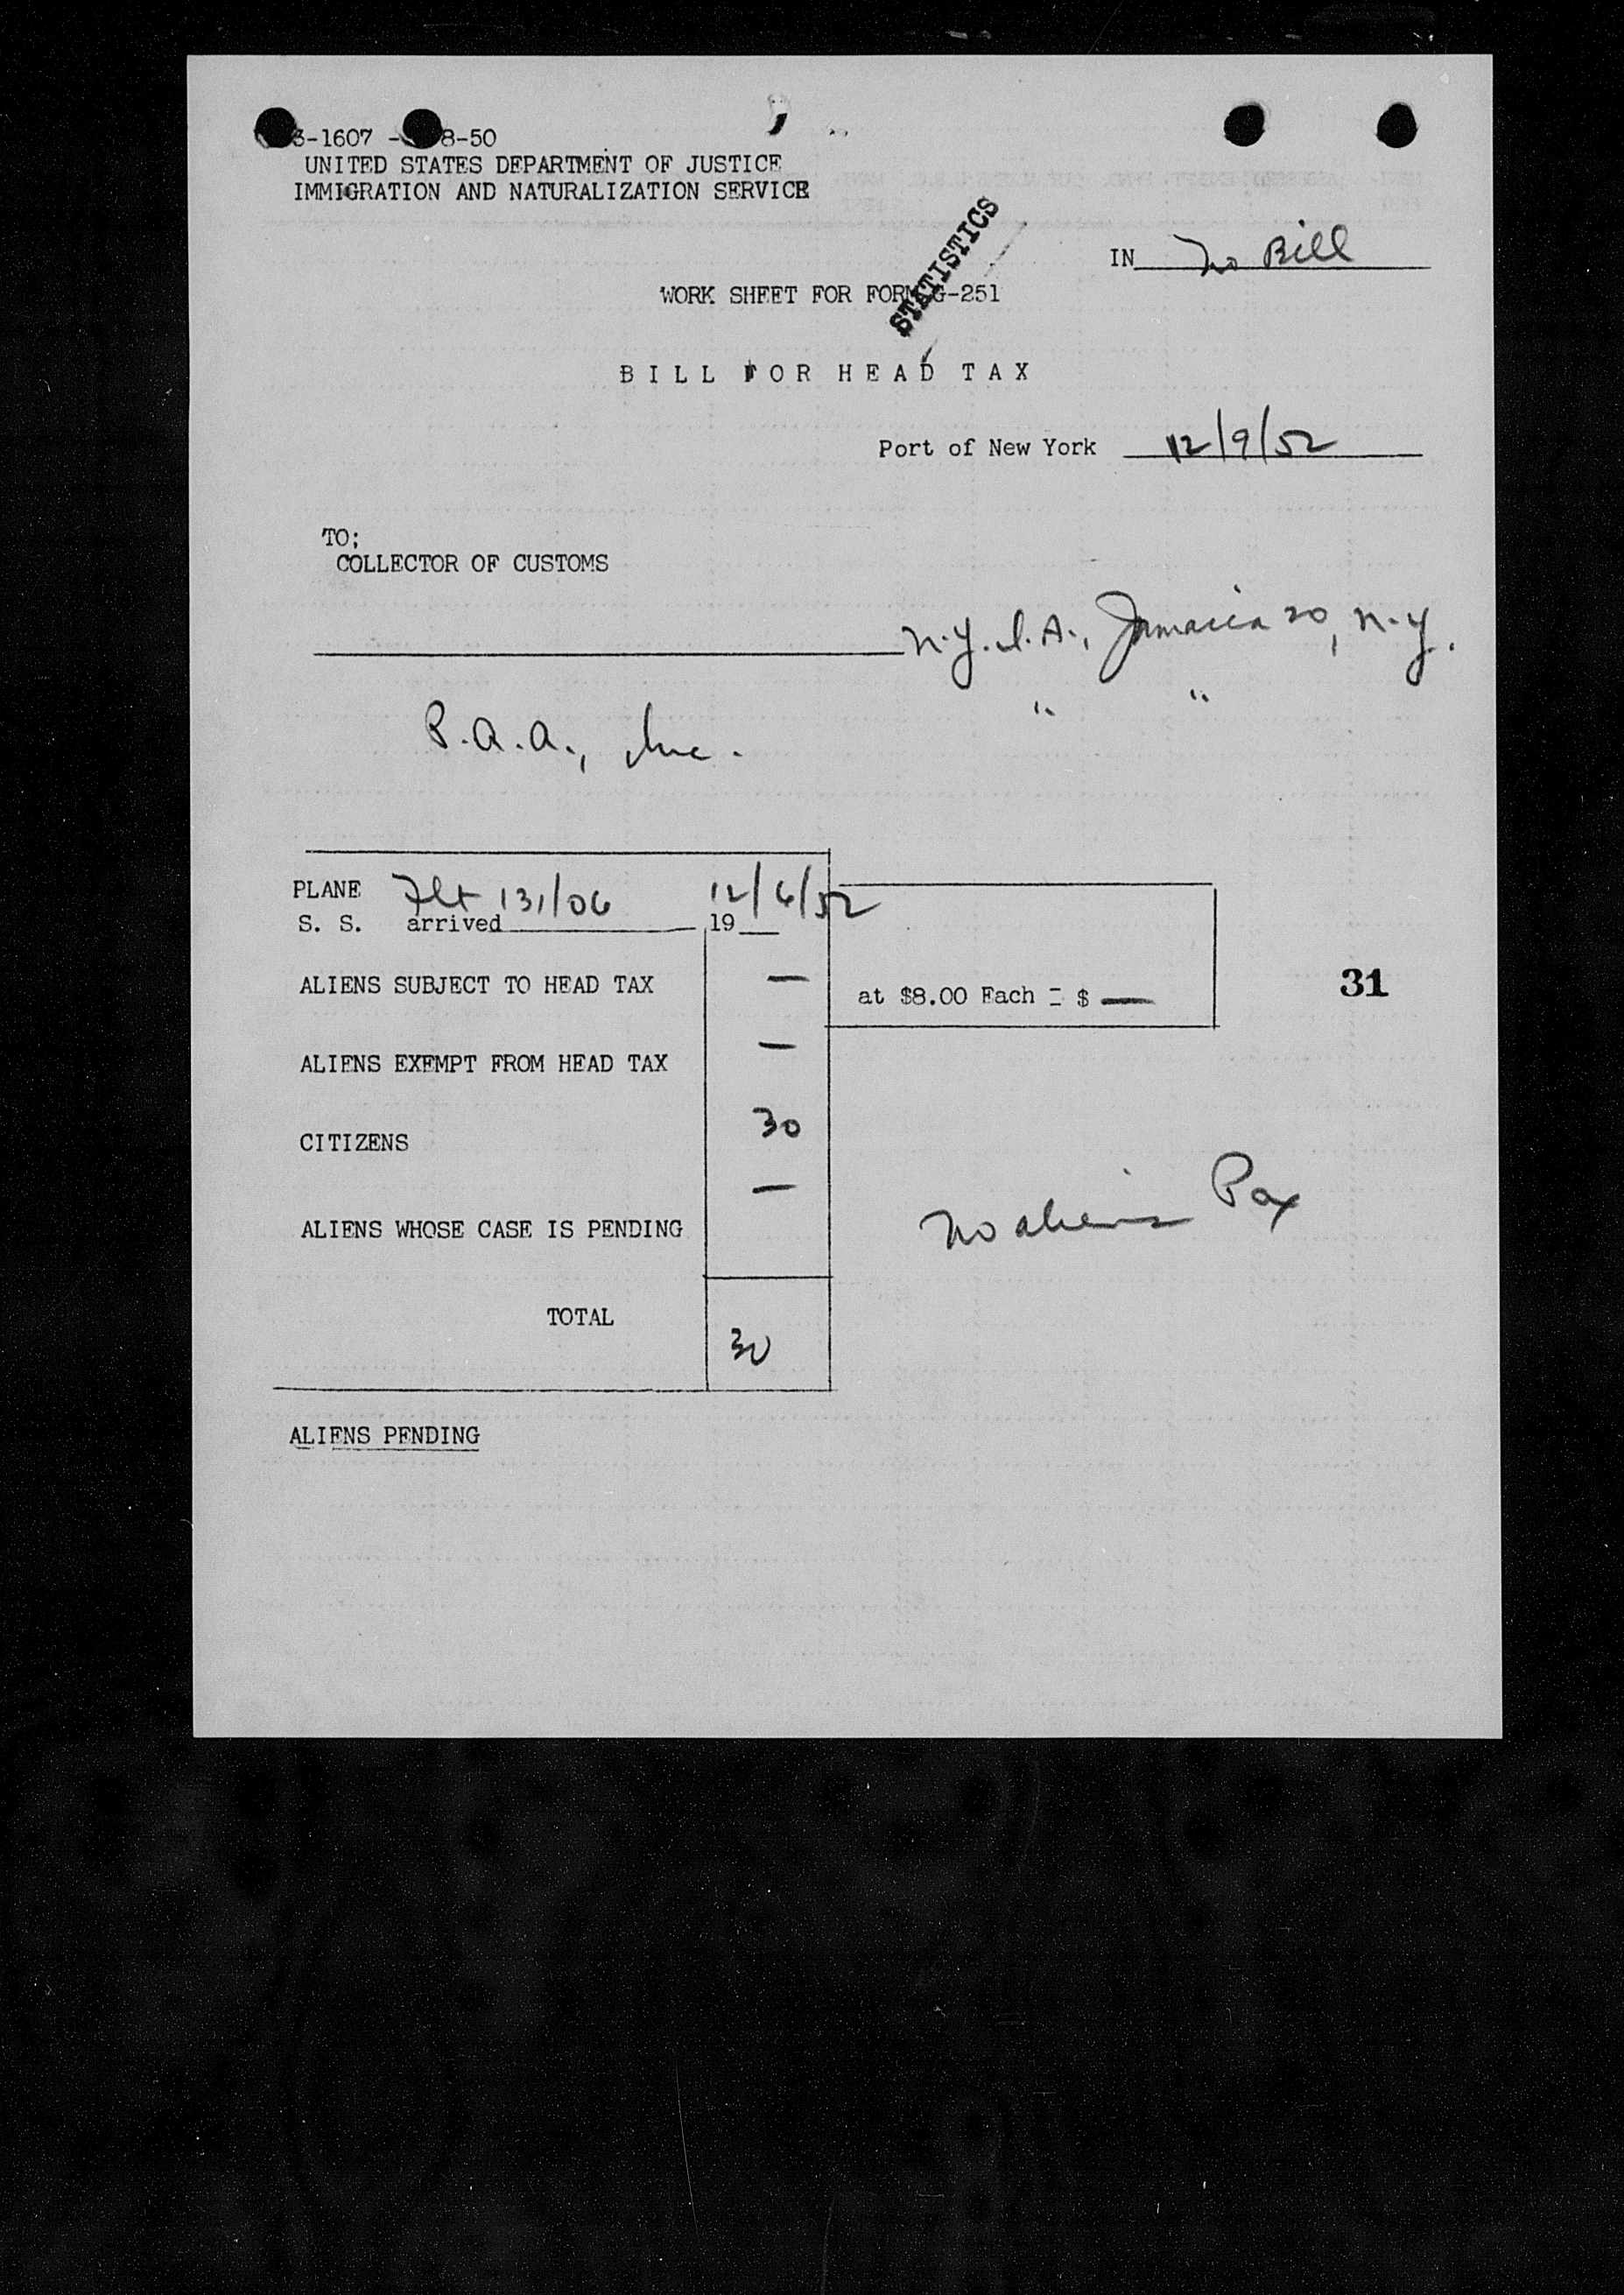 3-1607 - 8-50
UNITED STATES DEPARTMENT OF JUSTICE
IMMIGRATION AND NATURALIZATION SERVICE
STATISTICS
IN No Bill
WORK SHEET FOR FORM G-251
BILL FOR HEAD TAX
Port of New York 12/9/52
TO;
COLLECTOR OF CUSTOMS
N.Y.I.A., Jamaica 20, N.Y.
P.A.A., Inc. " "
PLANE Flt 131/06 12/6/52
S. S. arrived 19
ALIENS SUBJECT TO HEAD TAX — at $8.00 Each = $ — 31
ALIENS EXEMPT FROM HEAD TAX —
CITIZENS 30
ALIENS WHOSE CASE IS PENDING —
No aliens Pax
TOTAL 30
ALIENS PENDING